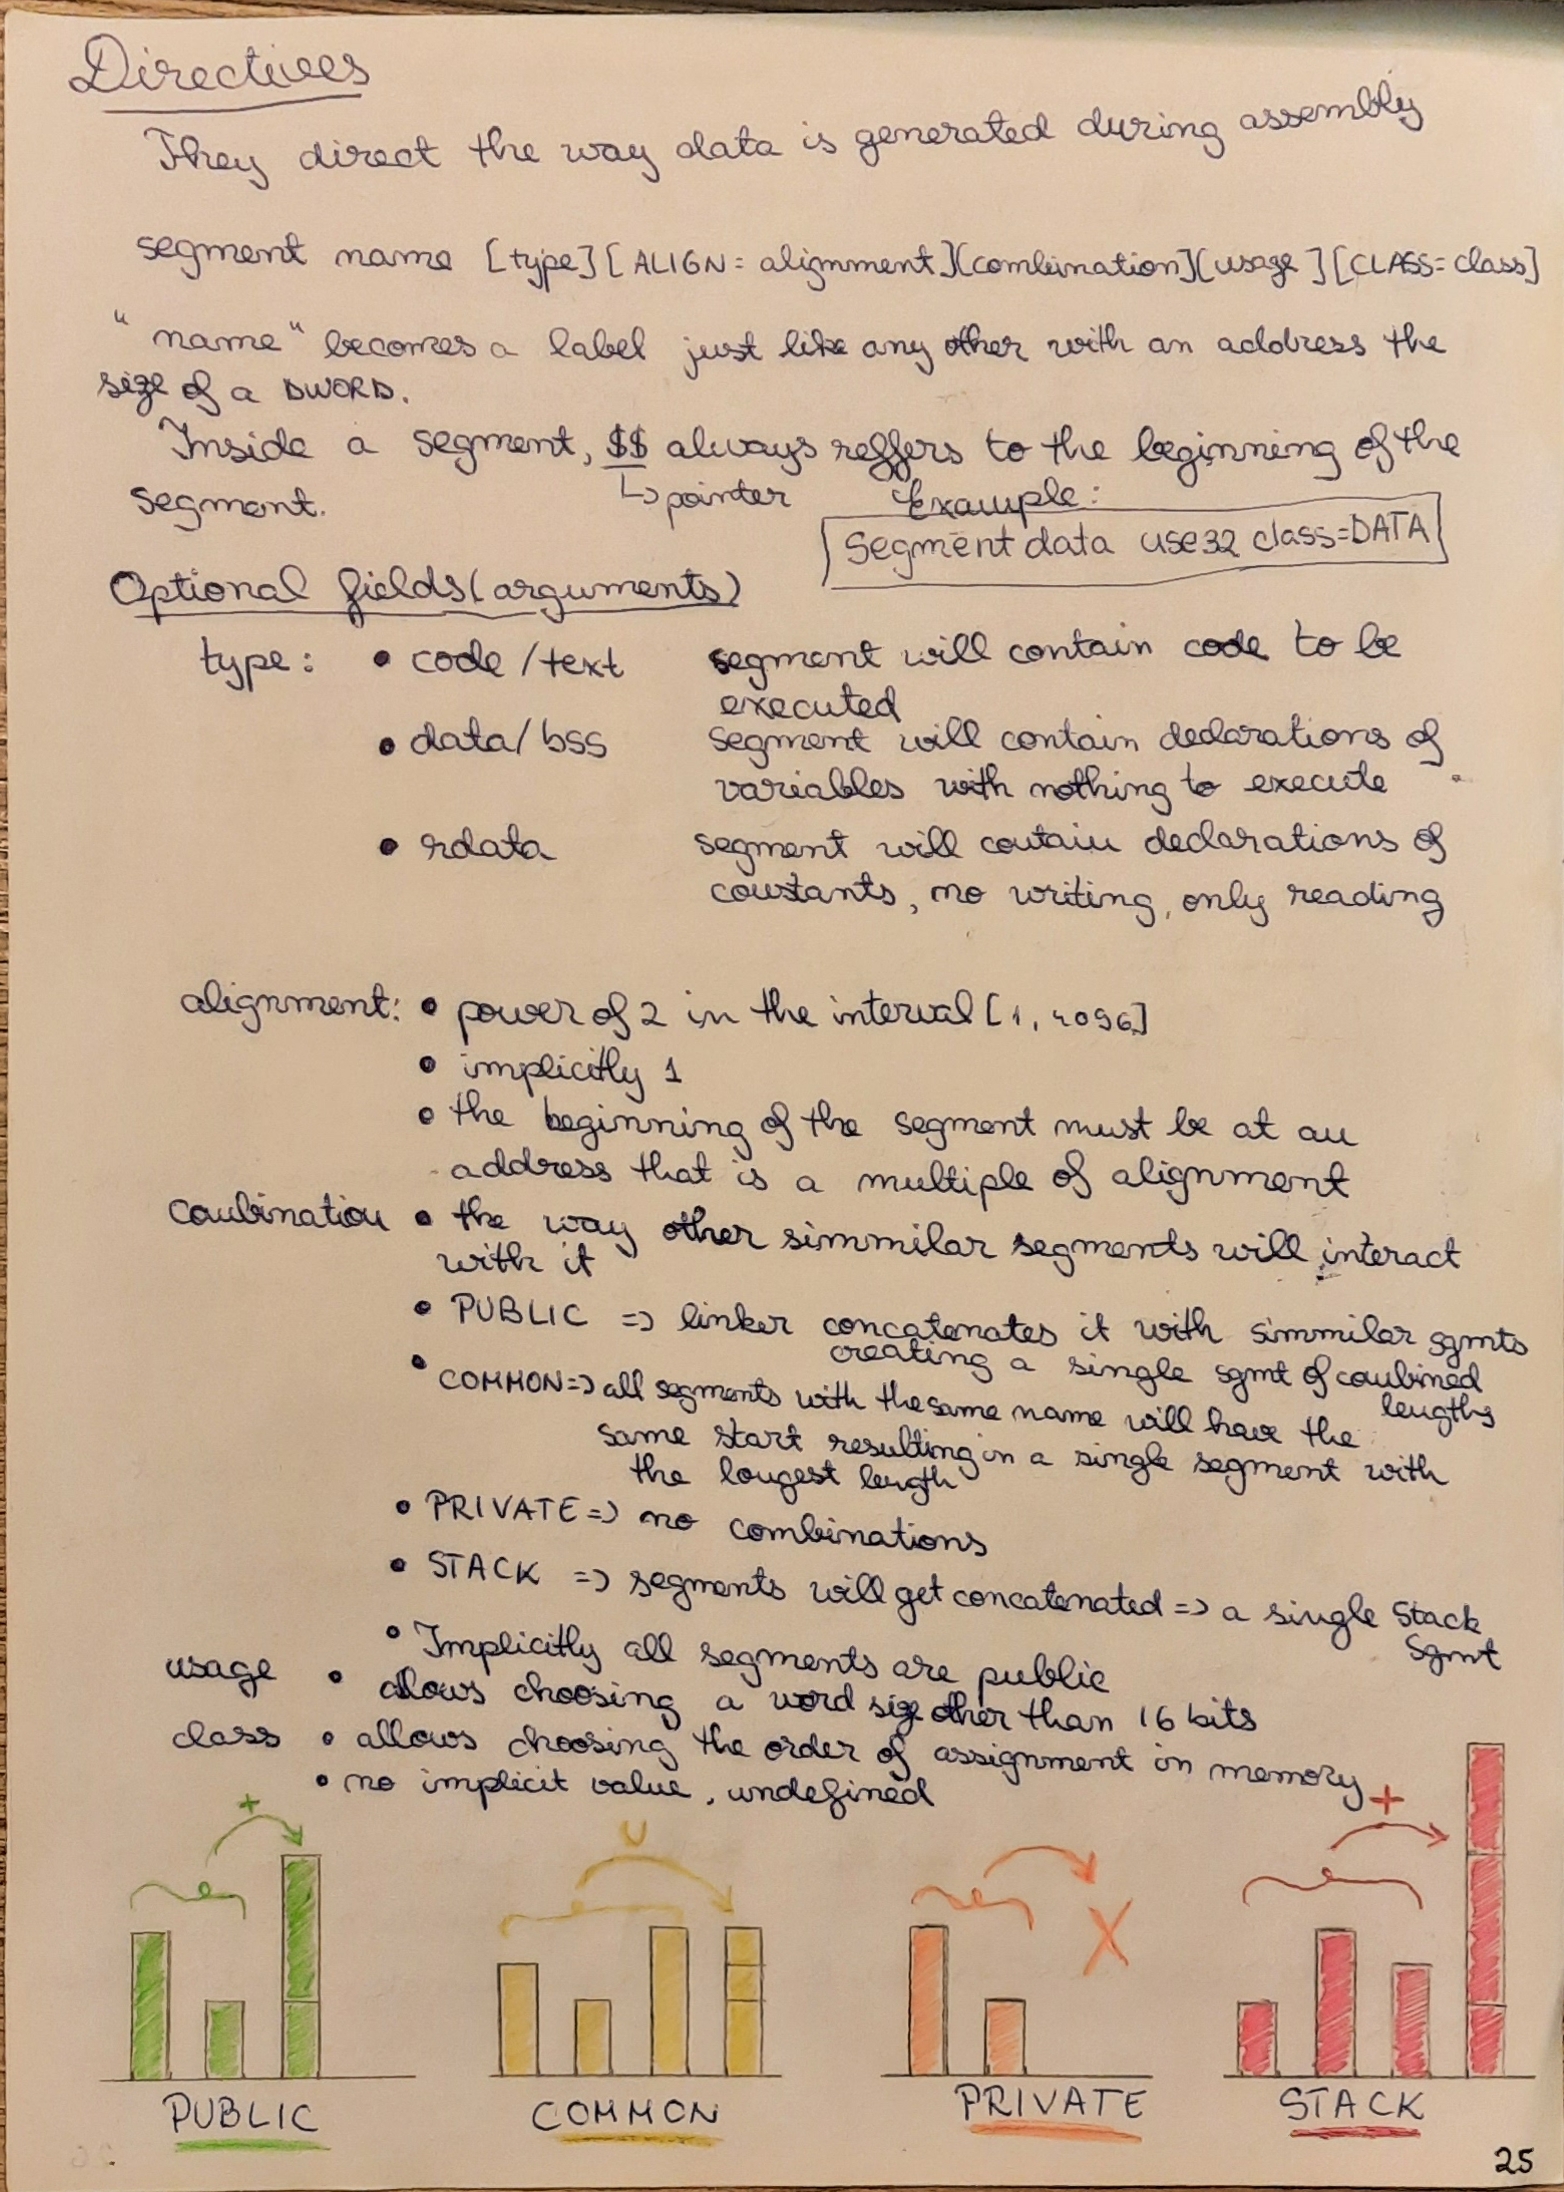 Directives
They direct the way data is generated during assembly
segment name [type][ALIGN=alignment][combination][usage][CLASS=class]
"name" becomes a label just like any other with an address the
size of a DWORD.
Inside a segment, $$ always reffers to the beginning of the
segment.
↳ pointer
Example:
Segment data use32 class=DATA
Optional fields (arguments)
type: • code/text segment will contain code to be
executed
• data/bss segment will contain declarations of
variables with nothing to execute
• rdata segment will contain declarations of
constants, no writing, only reading
alignment: • power of 2 in the interval [1, 4096]
• implicitly 1
• the beginning of the segment must be at an
address that is a multiple of alignment
combination • the way other simmilar segments will interact
with it
• PUBLIC => linker concatenates it with simmilar sgmts
creating a single sgmt of combined
lengths
• COMMON => all segments with the same name will have the
same start resulting in a single segment with
the longest length
• PRIVATE => no combinations
• STACK => segments will get concatenated => a single Stack
Sgmt
• Implicitly all segments are public
usage • allows choosing a word size other than 16 bits
class • allows choosing the order of assignment in memory
• no implicit value, undefined
+
U
X
+
PUBLIC
COMMON
PRIVATE
STACK
25